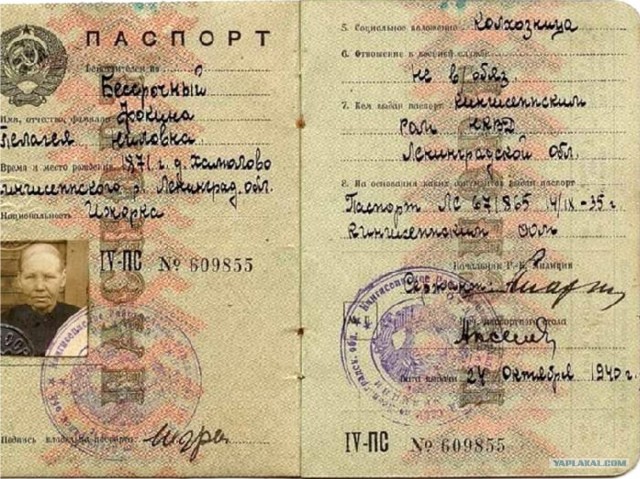 ПАСПОРТ
Действителен на
Бессрочный
Имя, отчество, фамилия
Фокина
Пелагея Ниловна
Время и место рождения 1871 г. д. Хамолово
Кингисеппского р. Ленинград. обл.
Национальность
Ижорка
IV-ПС № 609855
Подпись владельца паспорта
5. Социальное положение Колхозница
6. Отношение к военной службе
не в/обяз.
7. Кем выдан паспорт Кингисеппским
Рай НКВД
Ленинградской обл.
8. На основании каких документов выдан паспорт
Паспорт ЛС 67/865 14/IX-35 г
Кингисеппским
Начальник Р.-К. Милиции
Сержант
паспортного стола
24 Октября 1940 г.
IV-ПС № 609855
YAPLAKAL.COM